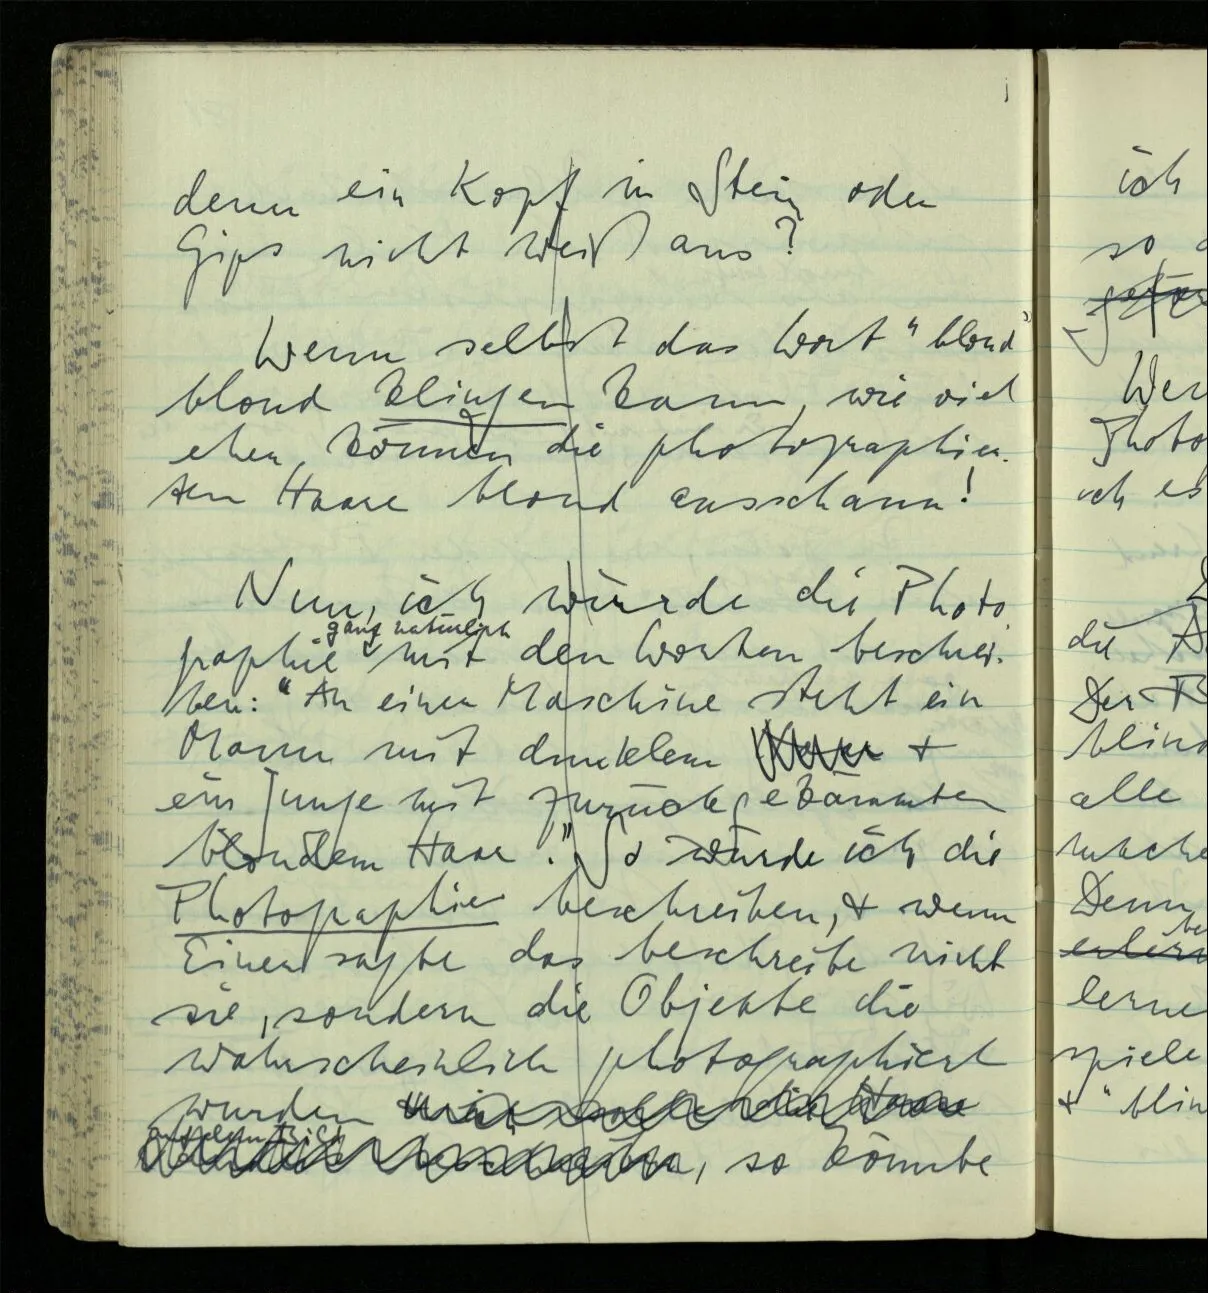 denn ein Kopf in Stein oder
Gips nicht weiß aus?
Wenn selbst das Wort "blond"
blond klingen kann, wie viel
eher, können die photographier-
ten Haare blond ausschaun!
Nun, ich würde die Photo
graphie ganz natürlich mit den Worten beschrei-
ben: "An einer Maschine steht ein
Mann mit dunklem Haar +
ein Junge mit zurückgekämmten
blondem Haar." So würde ich die
Photographie beschreiben, + wenn
Einer sagte das beschreibe nicht
sie, sondern die Objekte die
wahrscheinlich photographiert
wurden
auf dem Bild
, so könnte
ich
so
Wen
Photo
ich es
die
Der
blind
alle
mache
Denn
lerne
spiele
+ "blin